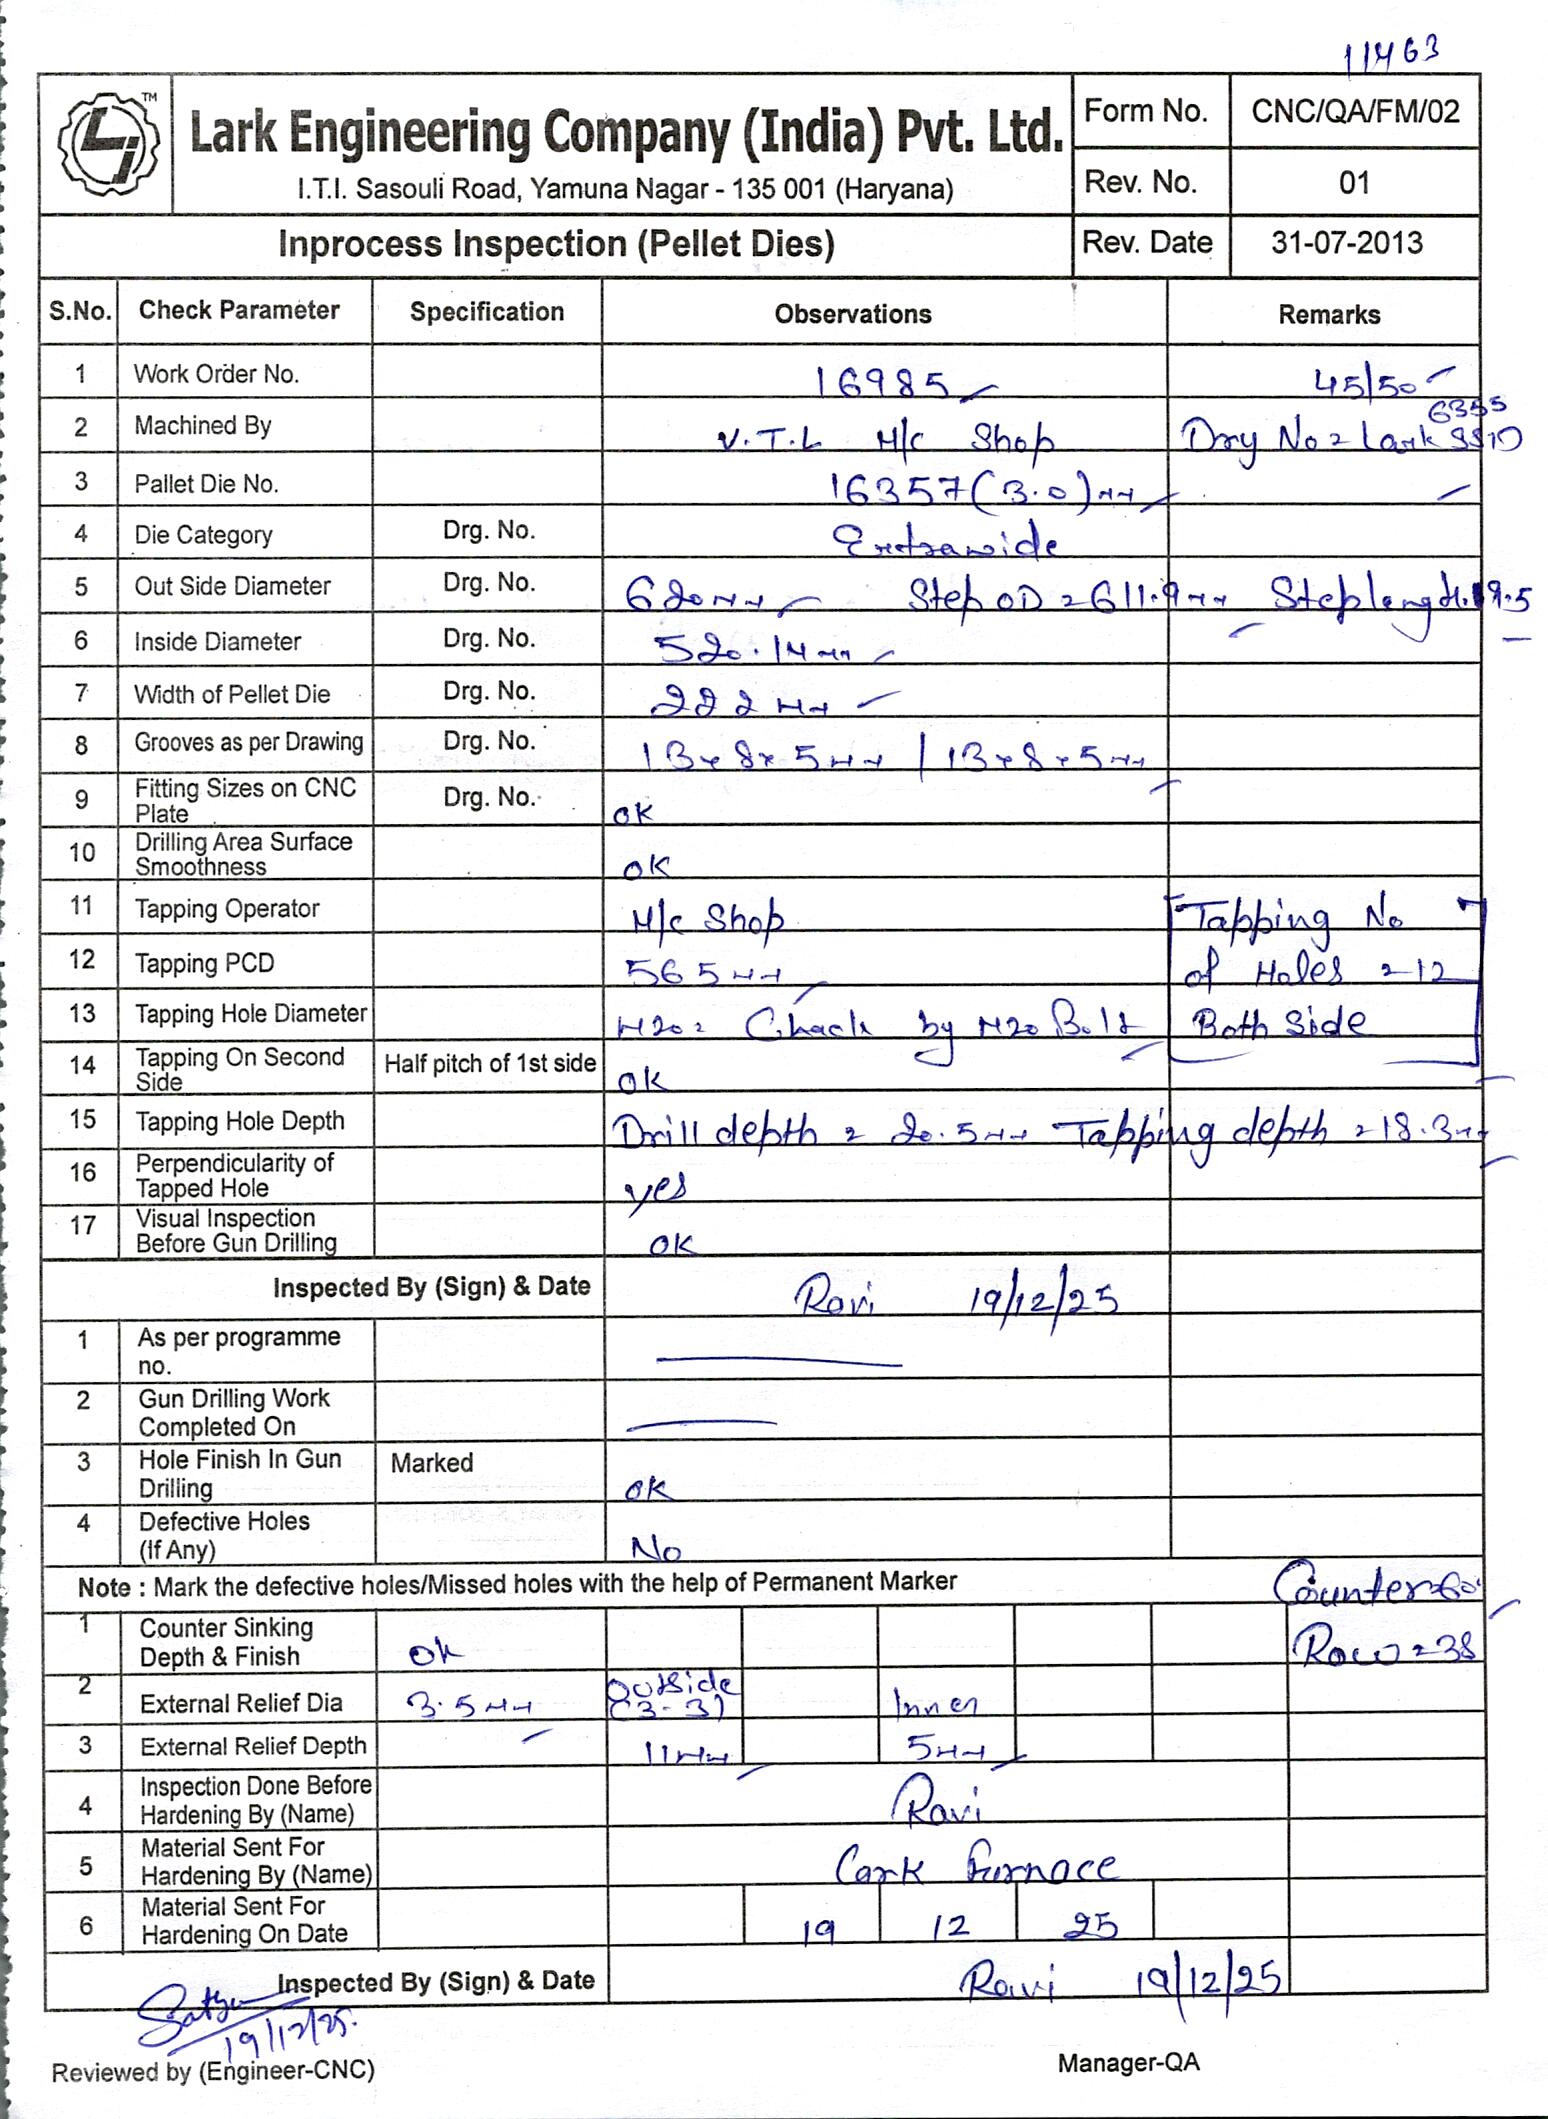 11463
TM
Lark Engineering Company (India) Pvt. Ltd.
I.T.I. Sasouli Road, Yamuna Nagar - 135 001 (Haryana)
Form No. CNC/QA/FM/02
Rev. No. 01
Inprocess Inspection (Pellet Dies) Rev. Date 31-07-2013
S.No. Check Parameter Specification Observations Remarks
1 Work Order No. 16985 45/50
2 Machined By V.T.L M/c Shop Drg No = Lark
3 Pallet Die No. 16357 (3.0)mm
4 Die Category Drg. No. Extrawide
5 Out Side Diameter Drg. No. 620mm Step OD = 611.9mm Step length
6 Inside Diameter Drg. No. 520.14mm
7 Width of Pellet Die Drg. No. 222mm
8 Grooves as per Drawing Drg. No. 13x8x5mm / 13x8x5mm
9 Fitting Sizes on CNC Plate Drg. No. OK
10 Drilling Area Surface Smoothness OK
11 Tapping Operator M/c Shop Tapping No
12 Tapping PCD 565mm of Holes = 12
13 Tapping Hole Diameter M20 = Chack by M20 Bolt Both Side
14 Tapping On Second Side Half pitch of 1st side OK
15 Tapping Hole Depth Drill depth = 20.5mm Tapping depth = 18.3mm
16 Perpendicularity of Tapped Hole yes
17 Visual Inspection Before Gun Drilling OK
Inspected By (Sign) & Date Ravi 19/12/25
1 As per programme no.
2 Gun Drilling Work Completed On
3 Hole Finish In Gun Drilling Marked OK
4 Defective Holes (If Any) No
Note : Mark the defective holes/Missed holes with the help of Permanent Marker Counter = 60°
1 Counter Sinking Depth & Finish OK Row = 38
2 External Relief Dia 3.5mm Outside (3-3) Inner
3 External Relief Depth 11mm 5mm
4 Inspection Done Before Hardening By (Name) Ravi
5 Material Sent For Hardening By (Name) Lark Furnace
6 Material Sent For Hardening On Date 19 12 25
Inspected By (Sign) & Date Ravi 19/12/25
19/12/25.
Reviewed by (Engineer-CNC) Manager-QA